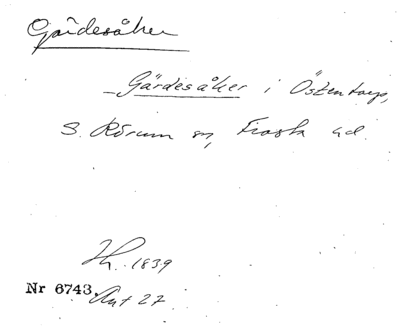 Gärdesåker
Gärdesåker i Östentorp,
S. Rörum sn, Frosta hd.
1839
Nr 6743. Ant 27